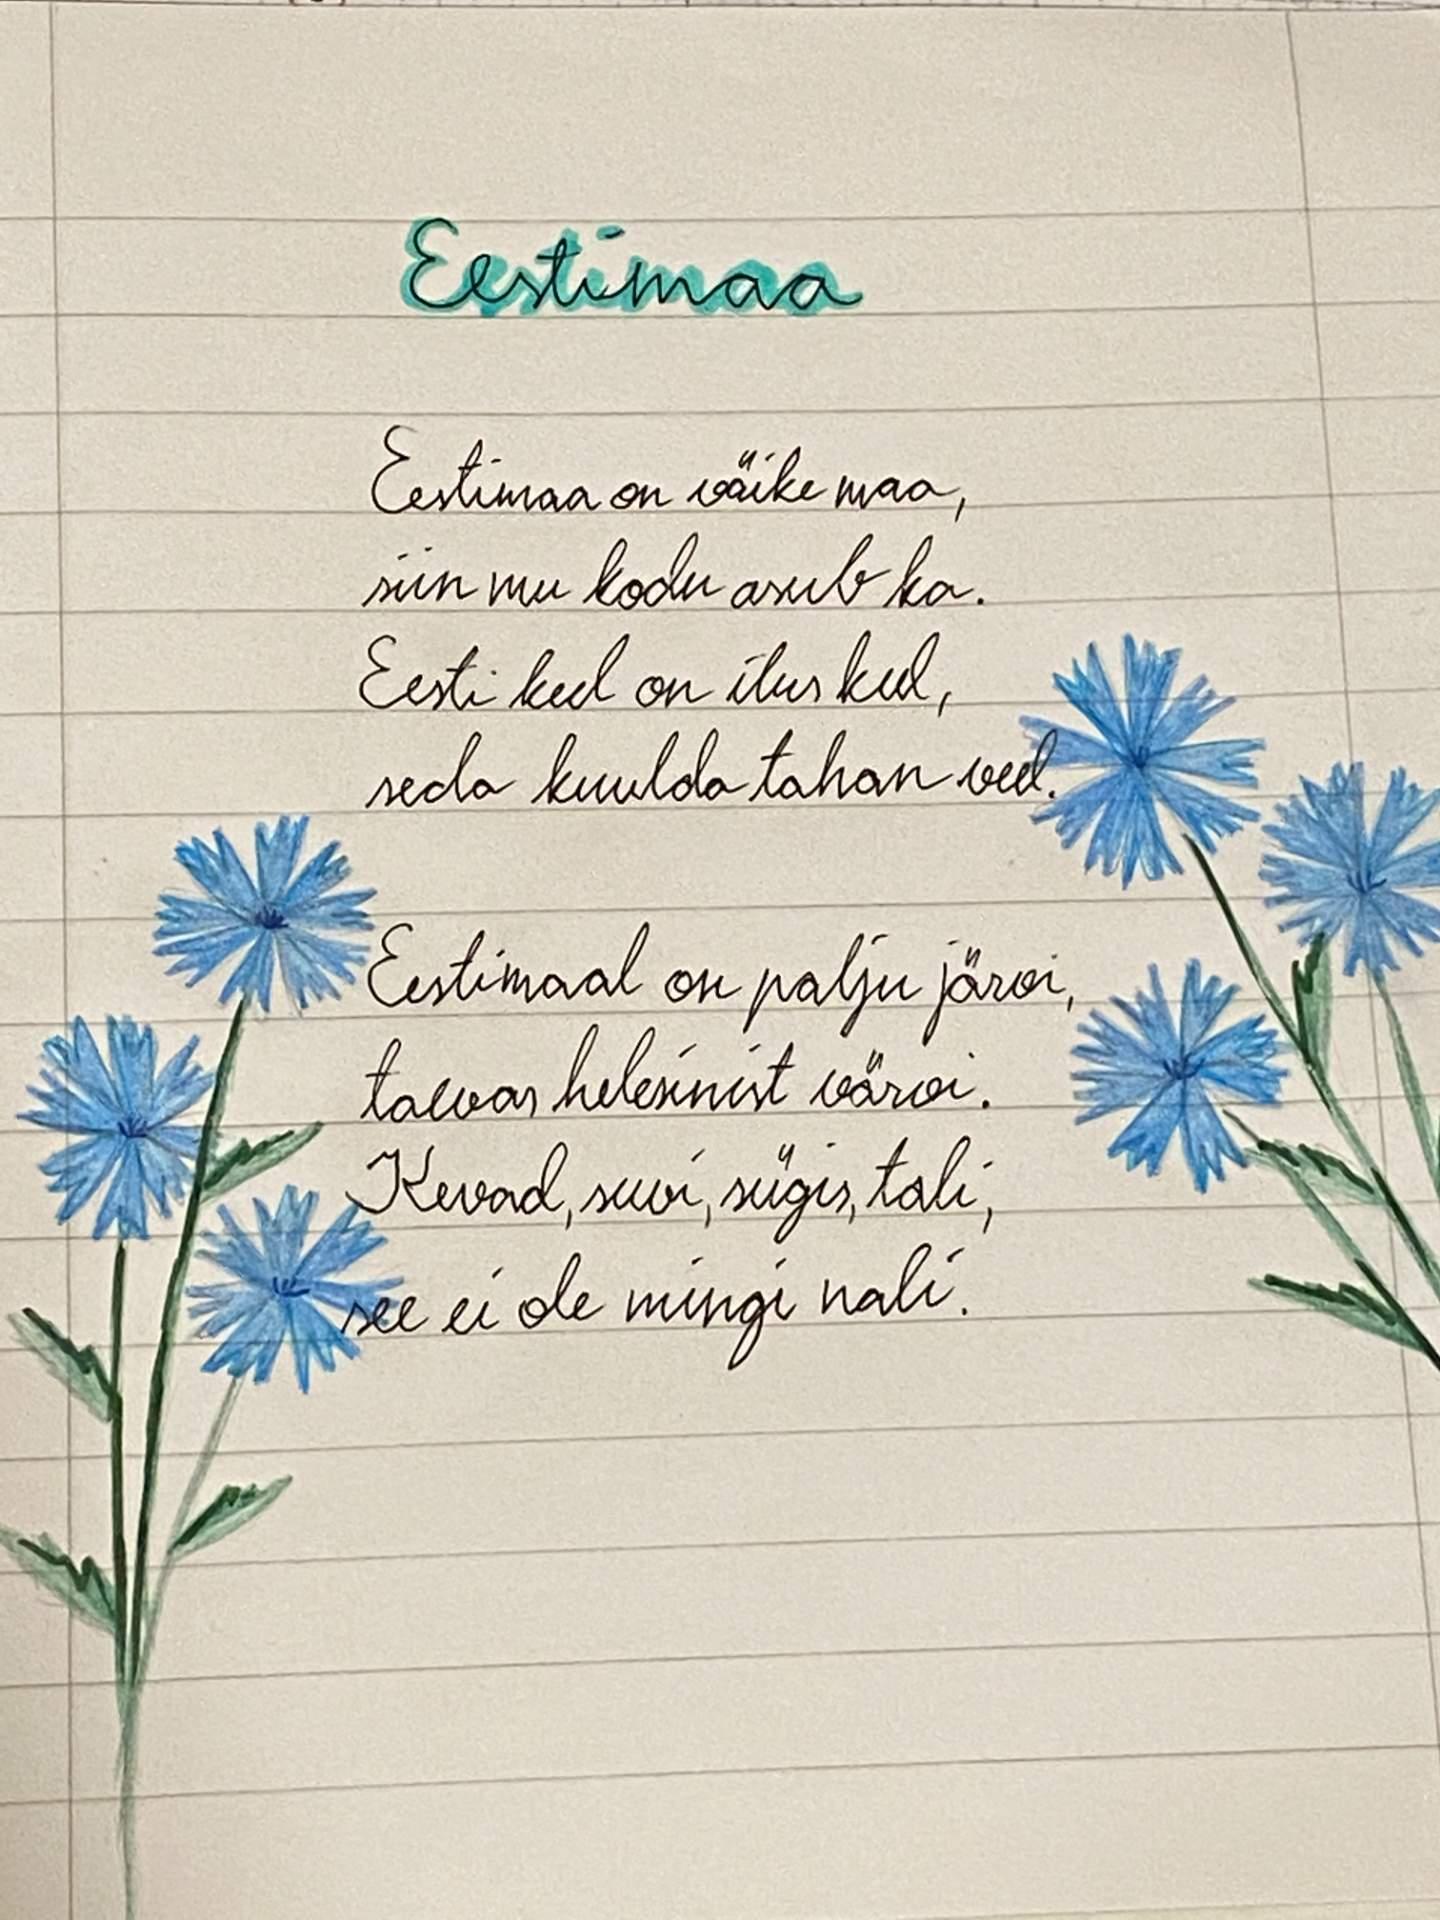 Eestimaa
Eestimaa on väike maa,
siin mu kodu asub ka.
Eesti keel on ilus keel,
seda kuulda tahan veel.
Eestimaal on palju järvi,
taevas helesinist värvi.
Kevad, suvi, sügis, tali,
see ei ole mingi nali.